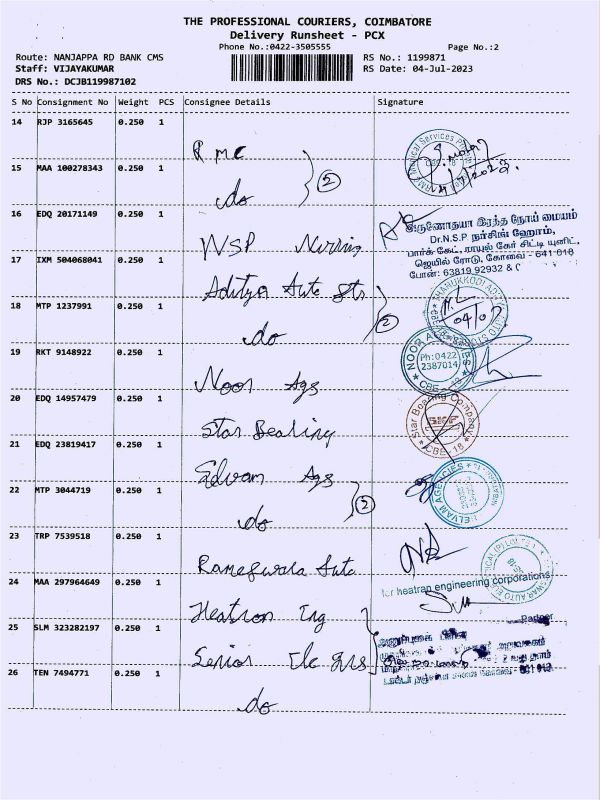 THE PROFESSIONAL COURIERS, COIMBATORE
Delivery Runsheet - PCX
Phone No.:0422-3505555
Page No.:2
Route: NANJAPPA RD BANK CMS
RS No.: 1199871
Staff: VIJAYAKUMAR
RS Date: 04-Jul-2023
DRS No.: DCJB119987102
S No Consignment No Weight PCS Consignee Details Signature
14 RJP 3165645 0.250 1
RMC
15 MAA 100278343 0.250 1
do
2
16 EDQ 20171149 0.250 1
NSP Nursing
அருணோதயா இரத்த நோய் மையம்
Dr.N.S.P நர்சிங் ஹோம்,
பார்க் கேட், ராயல் கேர் சிட்டி யூனிட்,
ஜெயில் ரோடு, கோவை - 641 018
போன்: 63819 92932 &
17 IXM 504068041 0.250 1
Aditya Auto
18 MTP 1237991 0.250 1
do
2
04/07
19 RKT 9148922 0.250 1
Noor Ags
NOOR
Ph:0422
2387014
CBE - 18
20 EDQ 14957479 0.250 1
Star Bearing
Star Bearing Company
SKF
CBE - 18
21 EDQ 23819417 0.250 1
Ags
SELVAM AGENCIES
22 MTP 3044719 0.250 1
do
2
23 TRP 7539518 0.250 1
Rameswara Auto
24 MAA 297964649 0.250 1
Heatran Eng
for heatran engineering corporations
Partner
25 SLM 323282197 0.250 1
Senior Ele
26 TEN 7494771 0.250 1
do